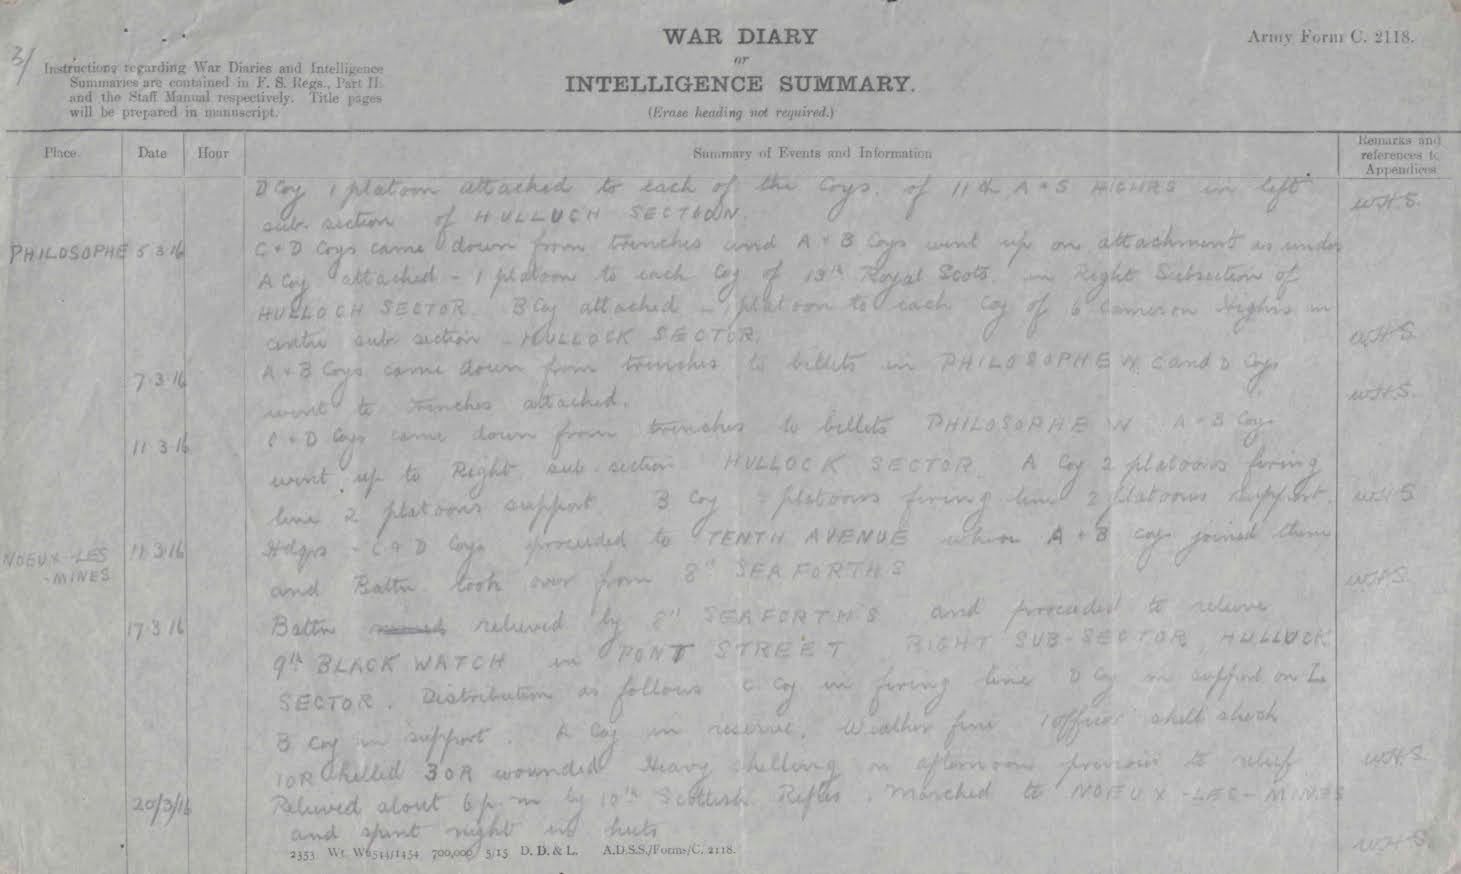 3/
WAR DIARY
or
INTELLIGENCE SUMMARY.
(Erase heading not required.)
Army Form C. 2118.
Instructions regarding War Diaries and Intelligence
Summaries are contained in F. S. Regs., Part II.
and the Staff Manual respectively. Title pages
will be prepared in manuscript.
Place Date Hour Summary of Events and Information Remarks and
references to
Appendices
D Coy 1 platoon attached to each of the Coys. of 11th A & S HIGHRS in left W.H.S.
sub. section of HULLUCH SECTION.
PHILOSOPHE 5 3 16 C & D Coys came down from trenches and A & B Coys went up on attachment as under
A Coy attached - 1 platoon to each Coy of 13th Royal Scots in Right Subsection of
HULLOCH SECTOR. B Coy attached - 1 platoon to each Coy of 6 Cameron Highrs in
centre sub section - HULLOCK SECTOR. W.H.S.
7.3.16 A & B Coys came down from trenches to billets in PHILOSOPHE N. C and D Coys
went to trenches attached. W.H.S.
11.3.16 C & D Coys came down from trenches to billets PHILOSOPHE N A & B Coys
went up to Right sub. section HULLOCK SECTOR. A Coy 2 platoons firing
line 2 platoons support B Coy 2 platoons firing line 2 platoons support. W.H.S
NOEUX-LES
-MINES 11.3.16 Hdqrs - C & D Coys proceeded to TENTH AVENUE where A & B coys joined them
and Battn took over from 8th SEAFORTHS W.H.S.
17.3.16 Battn relieved by 8th SEAFORTH'S and proceeded to relieve
9th BLACK WATCH in PONT STREET RIGHT SUB-SECTOR, HULLUCK
SECTOR. Distribution as follows C Coy in firing line D Coy in support on L
B Coy in support. A Coy in reserve. Weather fine 1 officer shell shock
1 OR killed 3 OR wounded Heavy shelling in afternoon previous to relief W.H.S.
20/3/16 Relieved about 6 p.m by 10th Scottish Rifles. Marched to NOEUX-LES-MINES
and spent night in huts W.H.S.
2353 Wt. W6544/1454 700,000 5/15 D. D. & L. A.D.S.S./Forms/C. 2118.